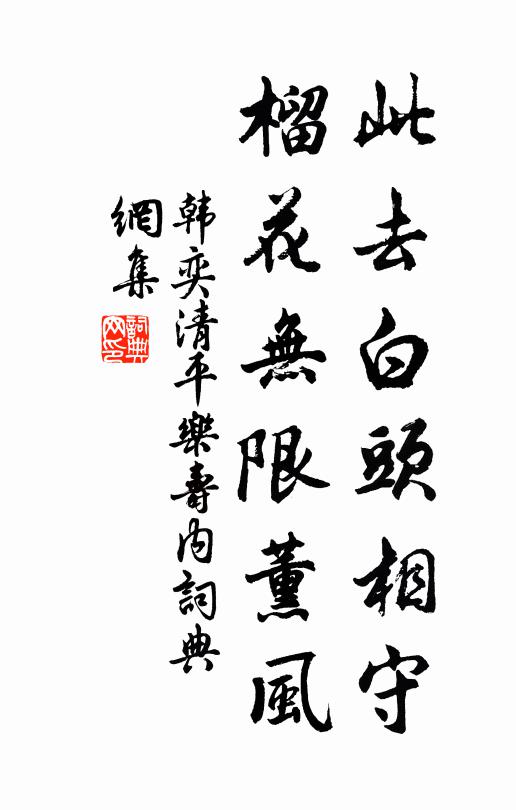 此去白頭相守
榴花無限薰風
韩奕清平樂壽内詞典
網集
詞典网印